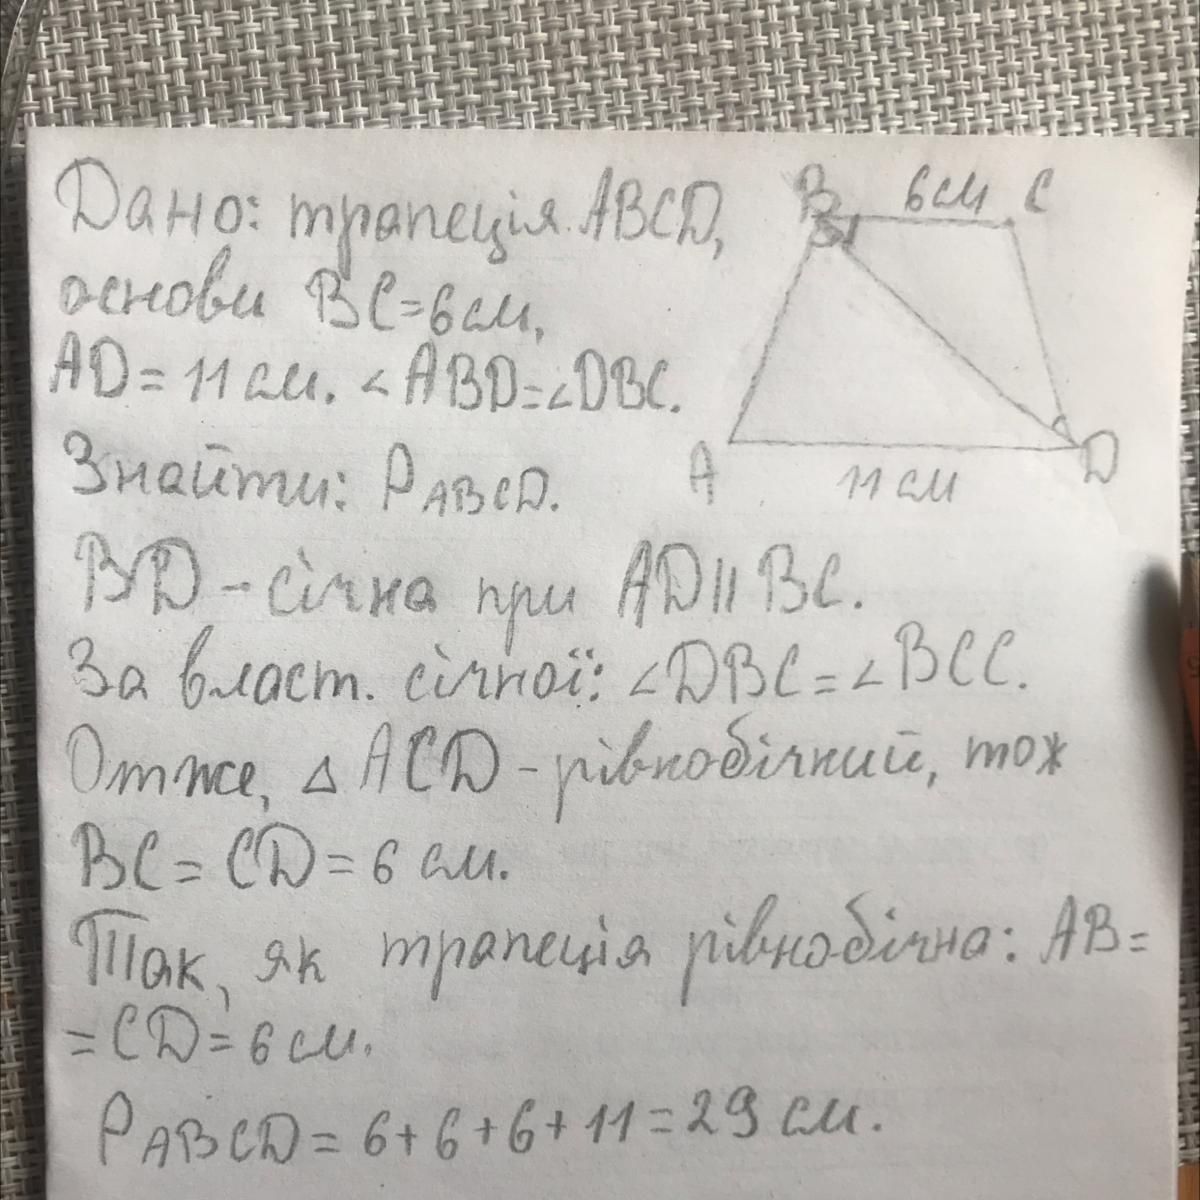 Дано: трапеція ABCD,
основи BC=6см,
AD=11см. ∠ABD=∠DBC.
Знайти: P ABCD.
B 6см C
A 11см D
BD-січна при AD||BC.
За власт. січної: ∠DBC=∠BCC.
Отже, △ACD-рівнобічний, тож
BC=CD=6 см.
Так, як трапеція рівнобічна: AB=
=CD=6см.
P ABCD=6+6+6+11=29 см.